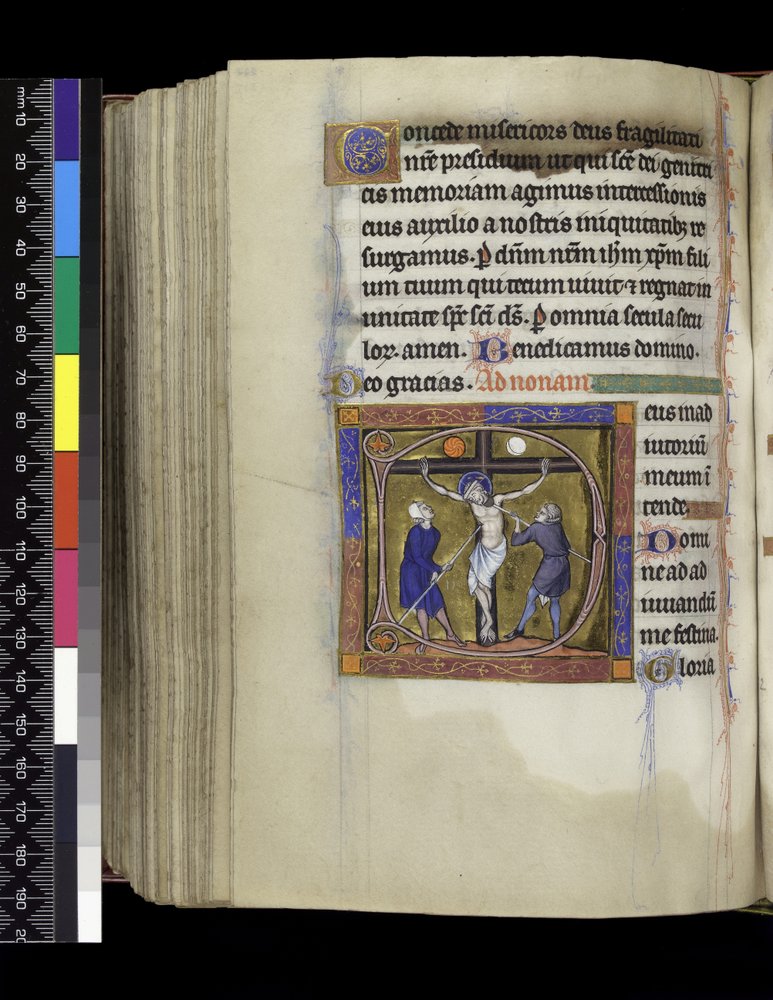 mm 10 20 30 40 50 60 70 80 90 100 110 120 130 140 150 160 170 180 190
Concede misericors deus fragilitati
nr̄e presidium ut qui sc̄e dei genitri
cis memoriam agimus intercessionis
eius auxilio a nostris iniquitatibꝫ re
surgamus. ꝑ dn̄m nr̄m ih̄m xp̄m fili
um tuum qui tecum uiuit ⁊ regnat in
unitate sp̄c sc̄i ds̄. ꝑ omnia secula secu
loꝝ. amen. Benedicamus domino.
Deo gracias. Ad nonam.
Deus in ad
iutoriū
meum ī
tende.
Domi
ne ad ad
iuuandū
me festina.
Gloria